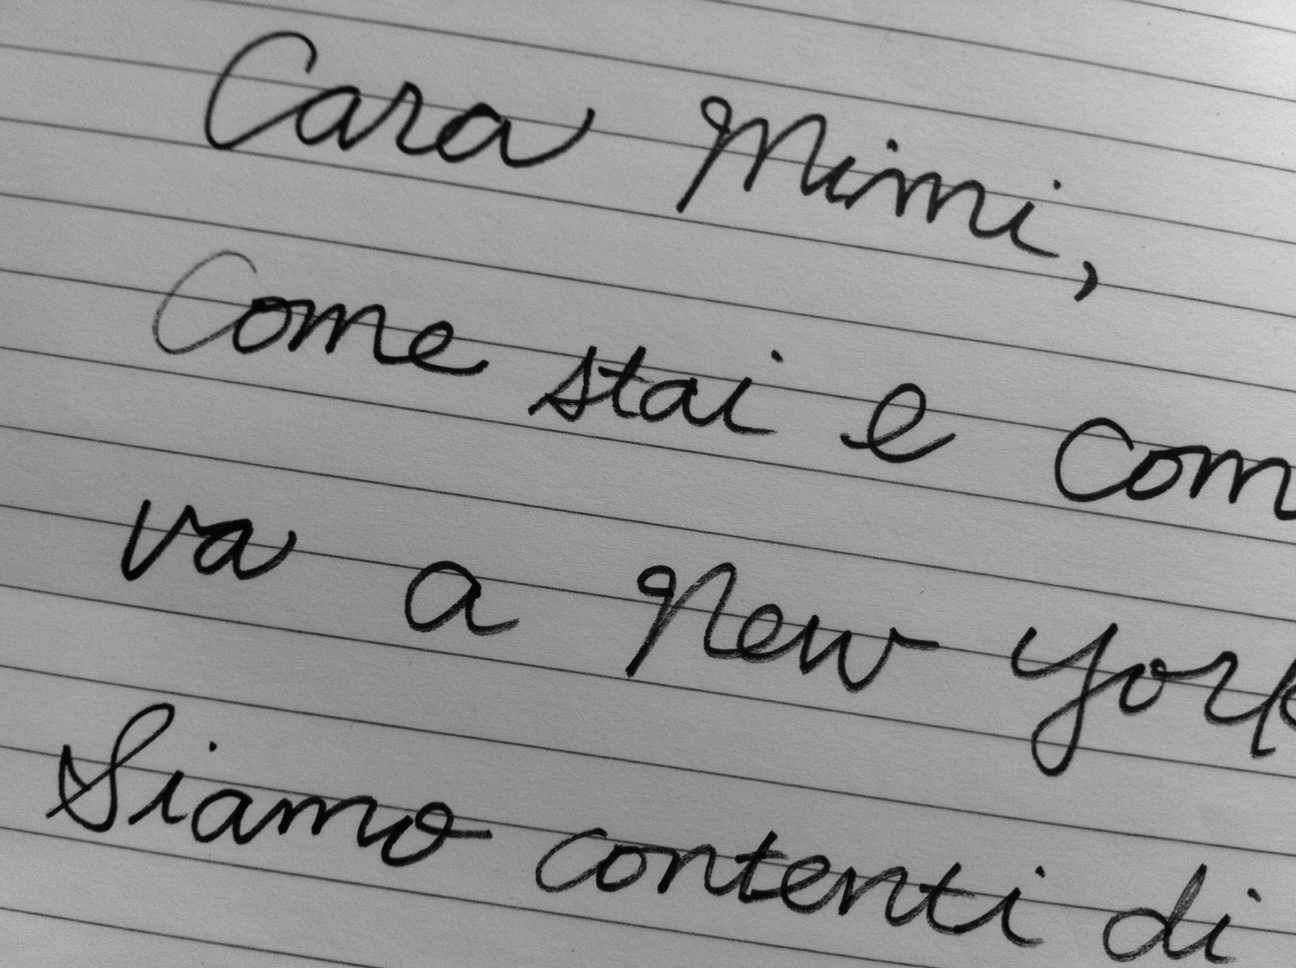 Cara Mimi,
Come stai e com
va a New York
Siamo contenti di